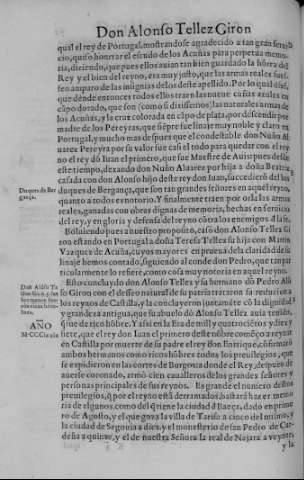 Don Alonso Tellez Giron
qual el rey de Portugal, mostrandose agradecido a tan gran servi
cio, quiso honrrar el escudo de los Acuñas para perpetua memo-
ria, diziendo, que pues ellos auian tan bien guardado la honra del
Rey y el bien del reyno, era muy justo, que las armas reales fues-
sen amparo de las insignias de los deste apellido. Por lo qual desde
que dende entonces todos ellos traen las nueue cuñas azules en
capo dorado, que son (como si dixessemos) las naturales armas de
los Acuñas, y la cruz colorada en cãpo de plata, por descendir por
madre de los Pereyras, que siẽpre fue linaje muy noble y claro en
Portugal, y mucho mas despues que el condestable don Nuño Al
uarez Pereyra por su valor fue casi el todo para quedar con el rey
no el rey dõ Iuan el primero, que fue Maestre de Auis: pues desde
este tiempo, dexando don Nuño Aluarez por hija a doña Beatriz
casada con don Alonso hijo deste rey don Iuan, succedierõ del los
Duques de Ber
gança.
duques de Bergança, que son tan grandes señores en aquel reyno,
quanto a todos es notorio. Y finalmente traen por orla las armas
reales, ganadas con obras dignas de memoria, hechas en seruicio
del rey, y en gloria y defensa de la vna cõtra los enemigos della.
Boluiendo pues a nuestro proposito, casó don Alonso Tellez Gi
ron estando en Portugal a doña Teresa Tellez su hija con Martin
Vazquez de Acuña, cuyos mayores en prueua dela claridad de su
linaje hemos contado, siguiendo al conde don Pedro, que tan par
ticularmente lo refiere, como cosa muy notoria en aquel reyno.
Esto concluydo don Alonso Tellez y su hermano dõ Pedro Al
so Giron con el desseo natural de su patria tornaron a reduzirse a
los reynos de Castilla, y la concluyeron juntamẽte cõ la dignidad
y grandeza antigua, que su abuelo dõ Alonso Tellez auia tenido,
que de rico hõbre. Y assi en la Era de mil y quatrocientos y diez y
AÑO
siete, que el rey don Iuan el primero deste nõbre començo a reynar
en Castilla por muerte de su padre el rey don Enrrique, cõfirmarõ
ambos hermanos como ricos hõbres todos los preuilegios, que
se expidieron en las cortes de Burgos: a donde el Rey, despues de
auerse coronado, armó cien caualleros de los grandes señores y
personas principales de sus reynos. Es grande el numero destos
preuilegios, q̃ por el reyno está derramados, bastará haz er memo
ria de algunos, como del q̃ tiene la ciudad d Baeça, dado en prime
ro de Agosto, y el que goza la villa de Tarifa a cinco del mismo, y
la ciudad de Segouia a diez, y el monesterio de san Pedro de Car-
deña a quinze, y el de nuestra Señora la real de Najara a veynte,
y la